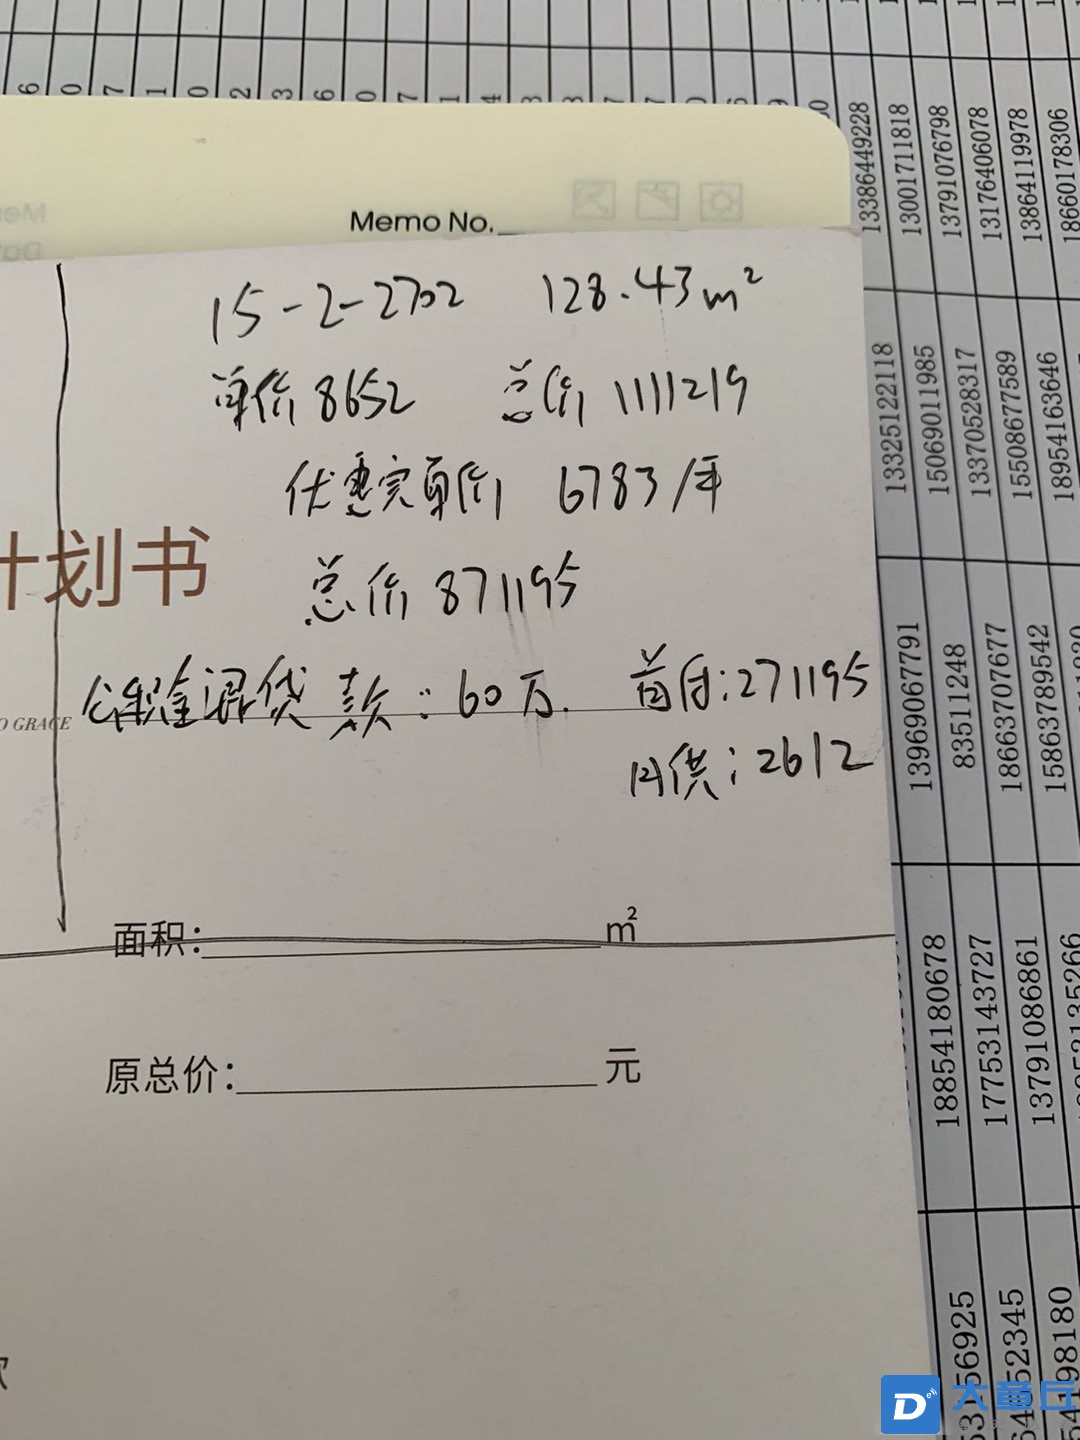 Memo No.
15-2-2702 128.43m²
单价8652 总价1111219
优惠完单价 6783/平
总价871195
计划书
公积金 贷款:60万. 首付:271195
O GRACE
月供:2612
面积: ㎡
原总价: 元
13386449228
13001711818
13791076798
13176406078
13864119978
18660178306
13325122118
15069011985
13370528317
15508677589
18954163646
13969067791
83511248
18663707677
15863789542
18854180678
17753143727
13791086861
大章丘